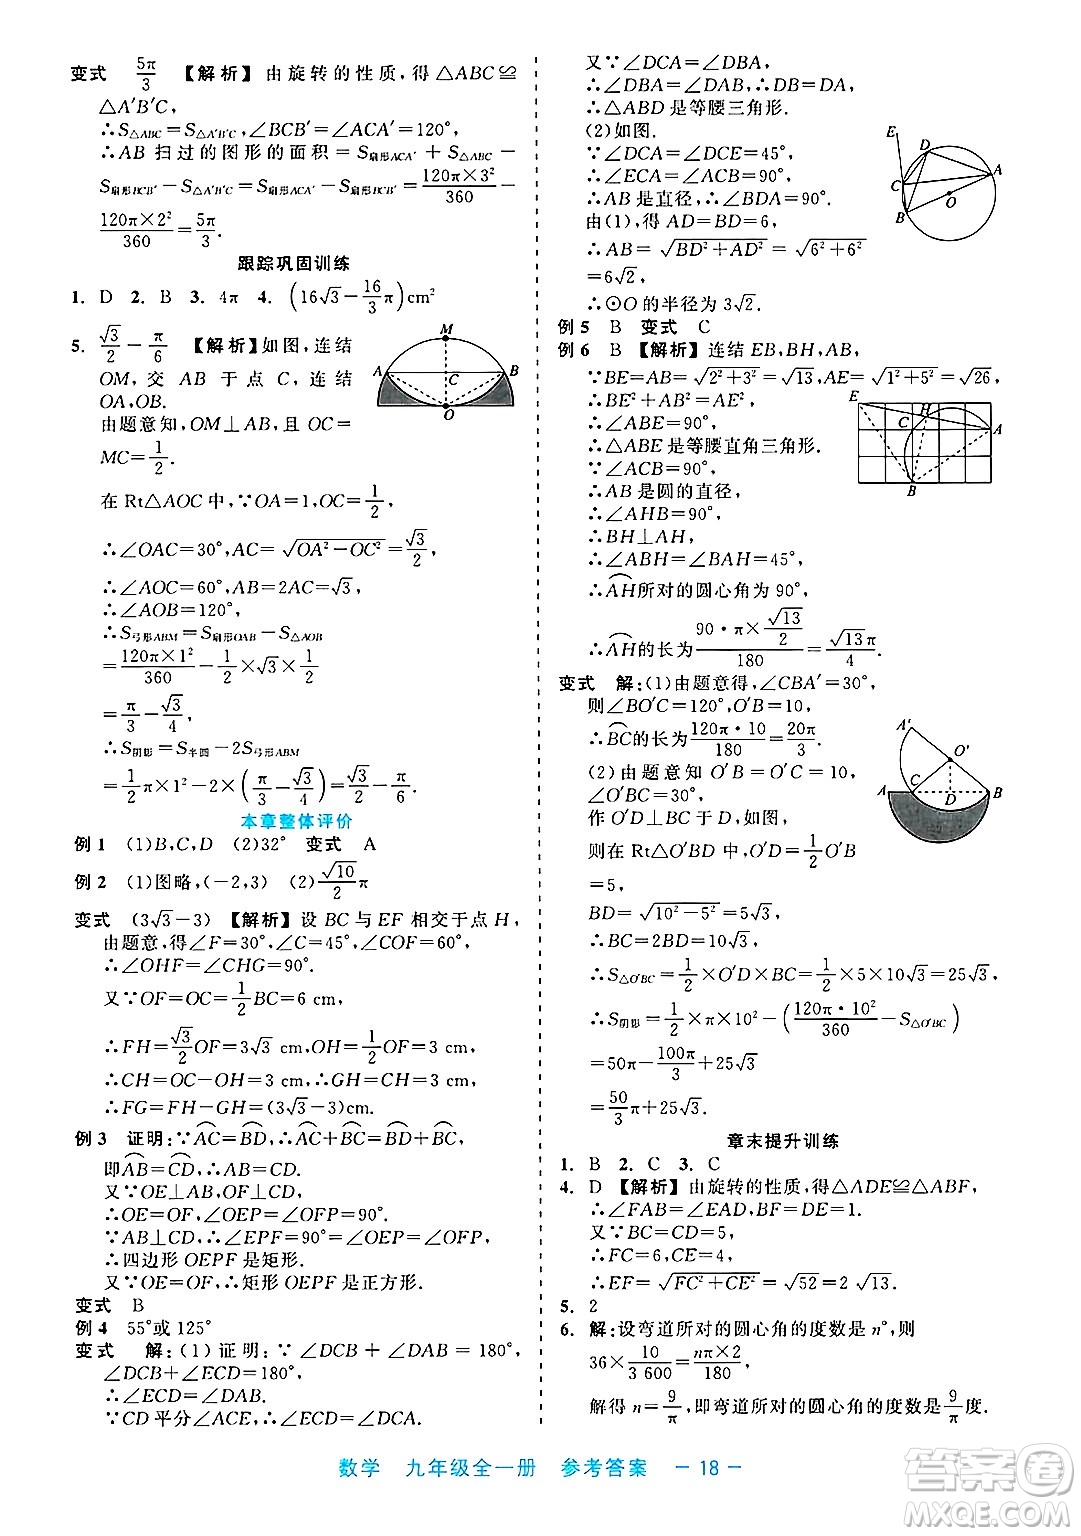 变式 5π/3 【解析】由旋转的性质,得△ABC≌
△A′B′C,
∴S△ABC=S△A′B′C,∠BCB′=∠ACA′=120°,
∴AB 扫过的图形的面积=S扇形ACA′+S△ABC−
S扇形BCB′−S△A′B′C=S扇形ACA′−S扇形BCB′=120π×3²/360−
120π×2²/360=5π/3.
跟踪巩固训练
1. D 2. B 3. 4π 4. (16√3−16/3π)cm²
5. √3/2−π/6 【解析】如图,连结
OM,交 AB 于点 C,连结
OA,OB.
由题意知,OM⊥AB,且 OC=
MC=1/2.
在 Rt△AOC 中,∵OA=1,OC=1/2,
∴∠OAC=30°,AC=√(OA²−OC²)=√3/2,
∴∠AOC=60°,AB=2AC=√3,
∴∠AOB=120°,
∴S弓形ABM=S扇形OAB−S△AOB
=120π×1²/360−1/2×√3×1/2
=π/3−√3/4,
∴S阴影=S半圆−2S弓形ABM
=1/2π×1²−2×(π/3−√3/4)=√3/2−π/6.
本章整体评价
例 1 (1)B,C,D (2)32° 变式 A
例 2 (1)图略,(−2,3) (2)√10/2π
变式 (3√3−3) 【解析】设 BC 与 EF 相交于点 H,
由题意,得∠F=30°,∠C=45°,∠COF=60°,
∴∠OHF=∠CHG=90°.
又∵OF=OC=1/2BC=6 cm,
∴FH=√3/2OF=3√3 cm,OH=1/2OF=3 cm,
∴CH=OC−OH=3 cm,∴GH=CH=3 cm,
∴FG=FH−GH=(3√3−3)cm.
例 3 证明:∵AC=BD,∴AC+BC=BD+BC,
即AB=CD,∴AB=CD.
又∵OE⊥AB,OF⊥CD,
∴OE=OF,∠OEP=∠OFP=90°.
∵AB⊥CD,∴∠EPF=90°=∠OEP=∠OFP,
∴四边形 OEPF 是矩形.
又∵OE=OF,∴矩形 OEPF 是正方形.
变式 B
例 4 55°或 125°
变式 解:(1)证明:∵∠DCB+∠DAB=180°,
∠DCB+∠ECD=180°,
∴∠ECD=∠DAB.
∵CD 平分∠ACE,∴∠ECD=∠DCA.
又∵∠DCA=∠DBA,
∴∠DBA=∠DAB,∴DB=DA,
∴△ABD 是等腰三角形.
(2)如图.
∵∠DCA=∠DCE=45°,
∴∠ECA=∠BCA=90°,
∴AB 是直径,∴∠BDA=90°.
由(1),得 AD=BD=6,
∴AB=√(BD²+AD²)=√(6²+6²)
=6√2,
∴⊙O 的半径为 3√2.
E
D
A
C
B
O
例 5 B 变式 C
例 6 B 【解析】连结 EB,BH,AB,
∵BE=AB=√(2²+3²)=√13,AE=√(1²+5²)=√26,
∴BE²+AB²=AE²,
∴∠ABE=90°,
∴△ABE 是等腰直角三角形.
∵∠ACB=90°,
∴AB 是圆的直径,
∴∠AHB=90°,
∴BH⊥AH,
∴∠ABH=∠BAH=45°,
∴AH所对的圆心角为 90°,
∴AH的长为90·π×√13/2/180=√13π/4.
变式 解:(1)由题意得,∠CBA′=30°,
则∠BO′C=120°,O′B=10,
∴BC的长为120π·10/180=20π/3.
(2)由题意知 O′B=O′C=10,
∠O′BC=30°.
作 O′D⊥BC 于 D,如图,
则在 Rt△O′BD 中,O′D=1/2O′B
=5,
BD=√(10²−5²)=5√3,
∴BC=2BD=10√3,
∴S△O′BC=1/2×O′D×BC=1/2×5×10√3=25√3,
∴S阴影=1/2×π×10²−(120π·10²/360−S△O′BC)
=50π−100π/3+25√3
=50/3π+25√3.
章末提升训练
1. B 2. C 3. C
4. D 【解析】由旋转的性质,得△ADE≌△ABF,
∴∠FAB=∠EAD,BF=DE=1.
又∵BC=CD=5,
∴FC=6,CE=4,
∴EF=√(FC²+CE²)=√52=2√13.
5. 2
6. 解:设弯道所对的圆心角的度数是 n°,则
36×10/3 600=nπ×2/180,
解得 n=9/π,即弯道所对的圆心角的度数是9/π度.
数学 九年级全一册 参考答案 －18－
答案圈
MXQE.COM